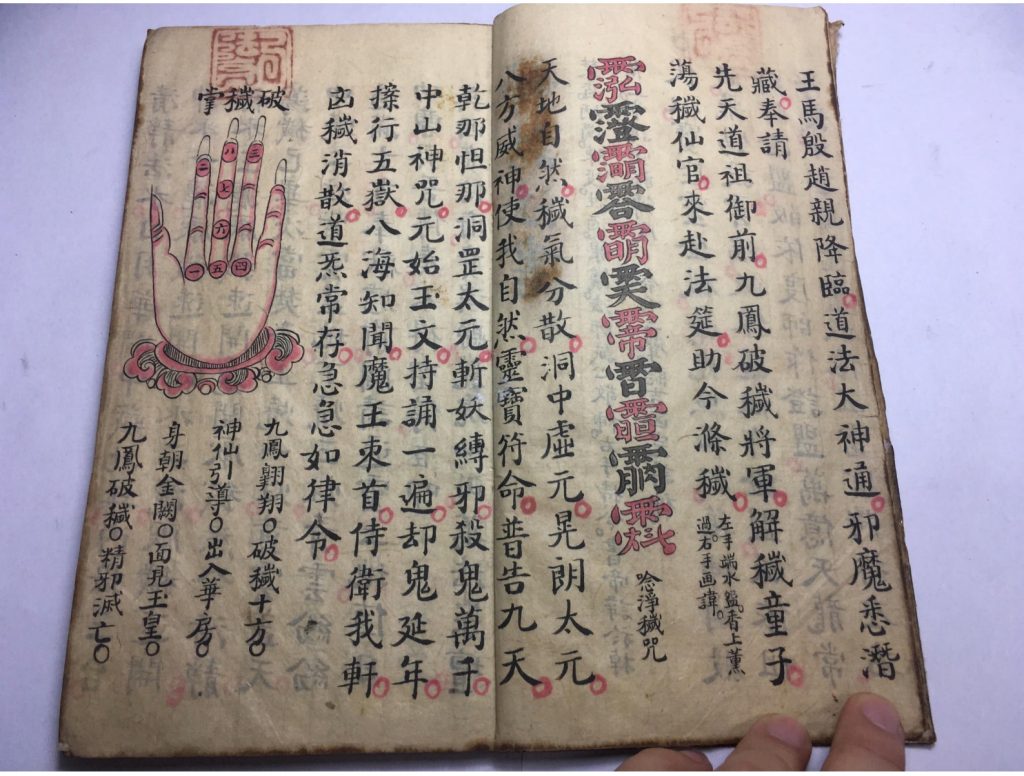 王馬殷趙親降臨道法大神通邪魔悉潛
藏奉請
先天道祖御前九鳳破穢將軍解穢童子
蕩穢仙官來赴法筵助今滌穢
左手端水盤香上薰
過右手画諱
唸淨穢咒
天地自然穢氣分散洞中虛元晃朗太元
八方威神使我自然靈寶符命普告九天
乾那怛那洞罡太元斬妖縛邪殺鬼萬千
中山神咒元始玉文持誦一遍却鬼延年
按行五嶽八海知聞魔王束首侍衛我軒
凶穢消散道炁常存急急如律令
破穢掌
三
八
二
七
六
四
五
一
九鳳翺翔○破穢十方○
神仙引導○出入華房○
身朝金闕○面見玉皇○
九鳳破穢○精邪滅亡○